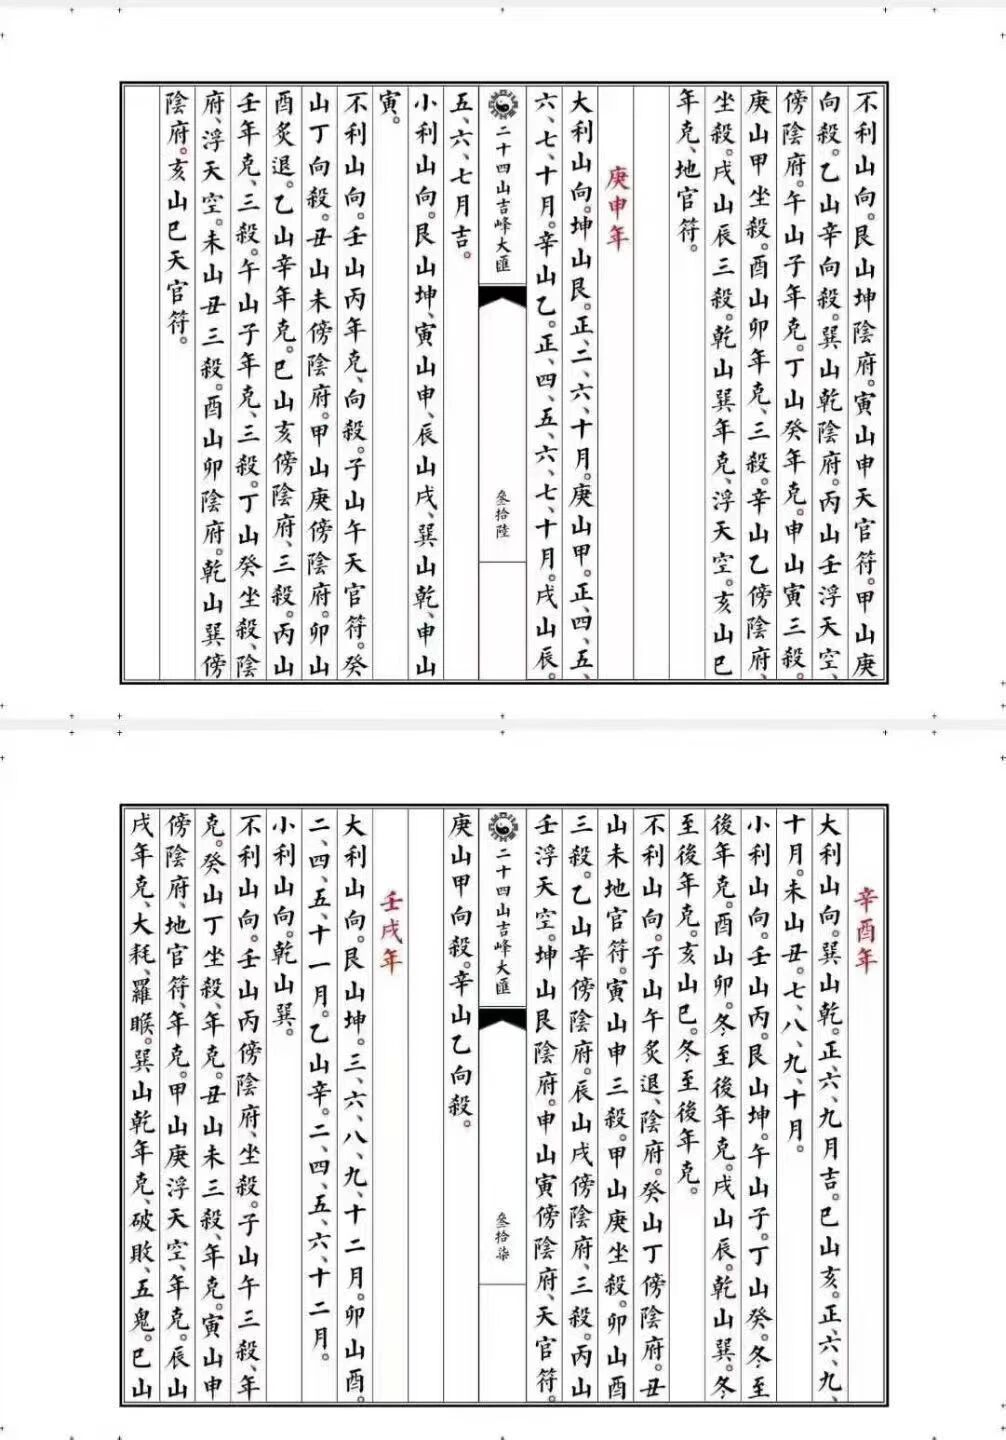 不利山向。艮山坤陰府。寅山申天官符。甲山庚
向殺。乙山辛向殺。巽山乾陰府。丙山壬浮天空、
傍陰府。午山子年克。丁山癸年克。申山寅三殺。
庚山甲坐殺。酉山卯年克、三殺。辛山乙傍陰府、
坐殺。戌山辰三殺。乾山巽年克、浮天空。亥山巳
年克、地官符。
庚申年
大利山向。坤山艮。正、二、六、十月。庚山甲。正、四、五、
六、七、十月。辛山乙。正、四、五、六、七、十月。戌山辰。
二十四山吉峰大匯
叁拾陸
五、六、七月吉。
小利山向。艮山坤、寅山申、辰山戌、巽山乾、申山
寅。
不利山向。壬山丙年克、向殺。子山午天官符。癸
山丁向殺。丑山未傍陰府。甲山庚傍陰府。卯山
酉炙退。乙山辛年克。巳山亥傍陰府、三殺。丙山
壬年克、三殺。午山子年克、三殺。丁山癸坐殺、陰
府、浮天空。未山丑三殺。酉山卯陰府。乾山巽傍
陰府。亥山巳天官符。
辛酉年
大利山向。巽山乾。正、六、九月吉。巳山亥。正、六、九、
十月。未山丑。七、八、九、十月。
小利山向。壬山丙。艮山坤。午山子。丁山癸。冬至
後年克。酉山卯。冬至後年克。戌山辰。乾山巽。冬
至後年克。亥山巳。冬至後年克。
不利山向。子山午炙退、陰府。癸山丁傍陰府。丑
山未地官符。寅山申三殺。甲山庚坐殺。卯山酉
三殺。乙山辛傍陰府。辰山戌傍陰府、三殺。丙山
壬浮天空。坤山艮陰府。申山寅傍陰府、天官符。
二十四山吉峰大匯
叁拾柒
庚山甲向殺。辛山乙向殺。
壬戌年
大利山向。艮山坤。三、六、八、九、十二月。卯山酉。
二、四、五、十一月。乙山辛。二、四、五、六、十二月。
小利山向。乾山巽。
不利山向。壬山丙傍陰府、坐殺。子山午三殺、年
克。癸山丁坐殺、年克。丑山未三殺、年克。寅山申
傍陰府、地官符、年克。甲山庚浮天空、年克。辰山
戌年克、大耗、羅睺。巽山乾年克、破敗、五鬼。巳山